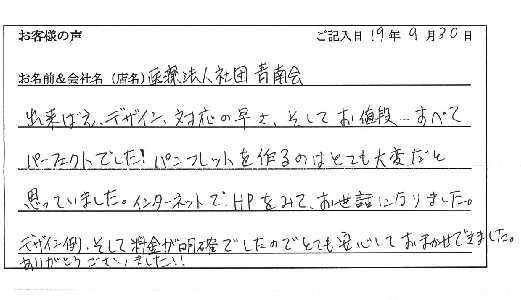 お客様の声 ご記入日 19年 9月 30日
お名前&会社名(店名) 医療法人社団 青南会
出来ばえ、デザイン、対応の早さ、そしてお値段…すべて
パーフェクトでした! パンフレットを作るのはとても大変だと
思っていました。インターネットで、HPをみて、お世話になりました。
デザイン例、そして料金が明確でしたのでとても安心しておまかせできました。
ありがとうございました!!